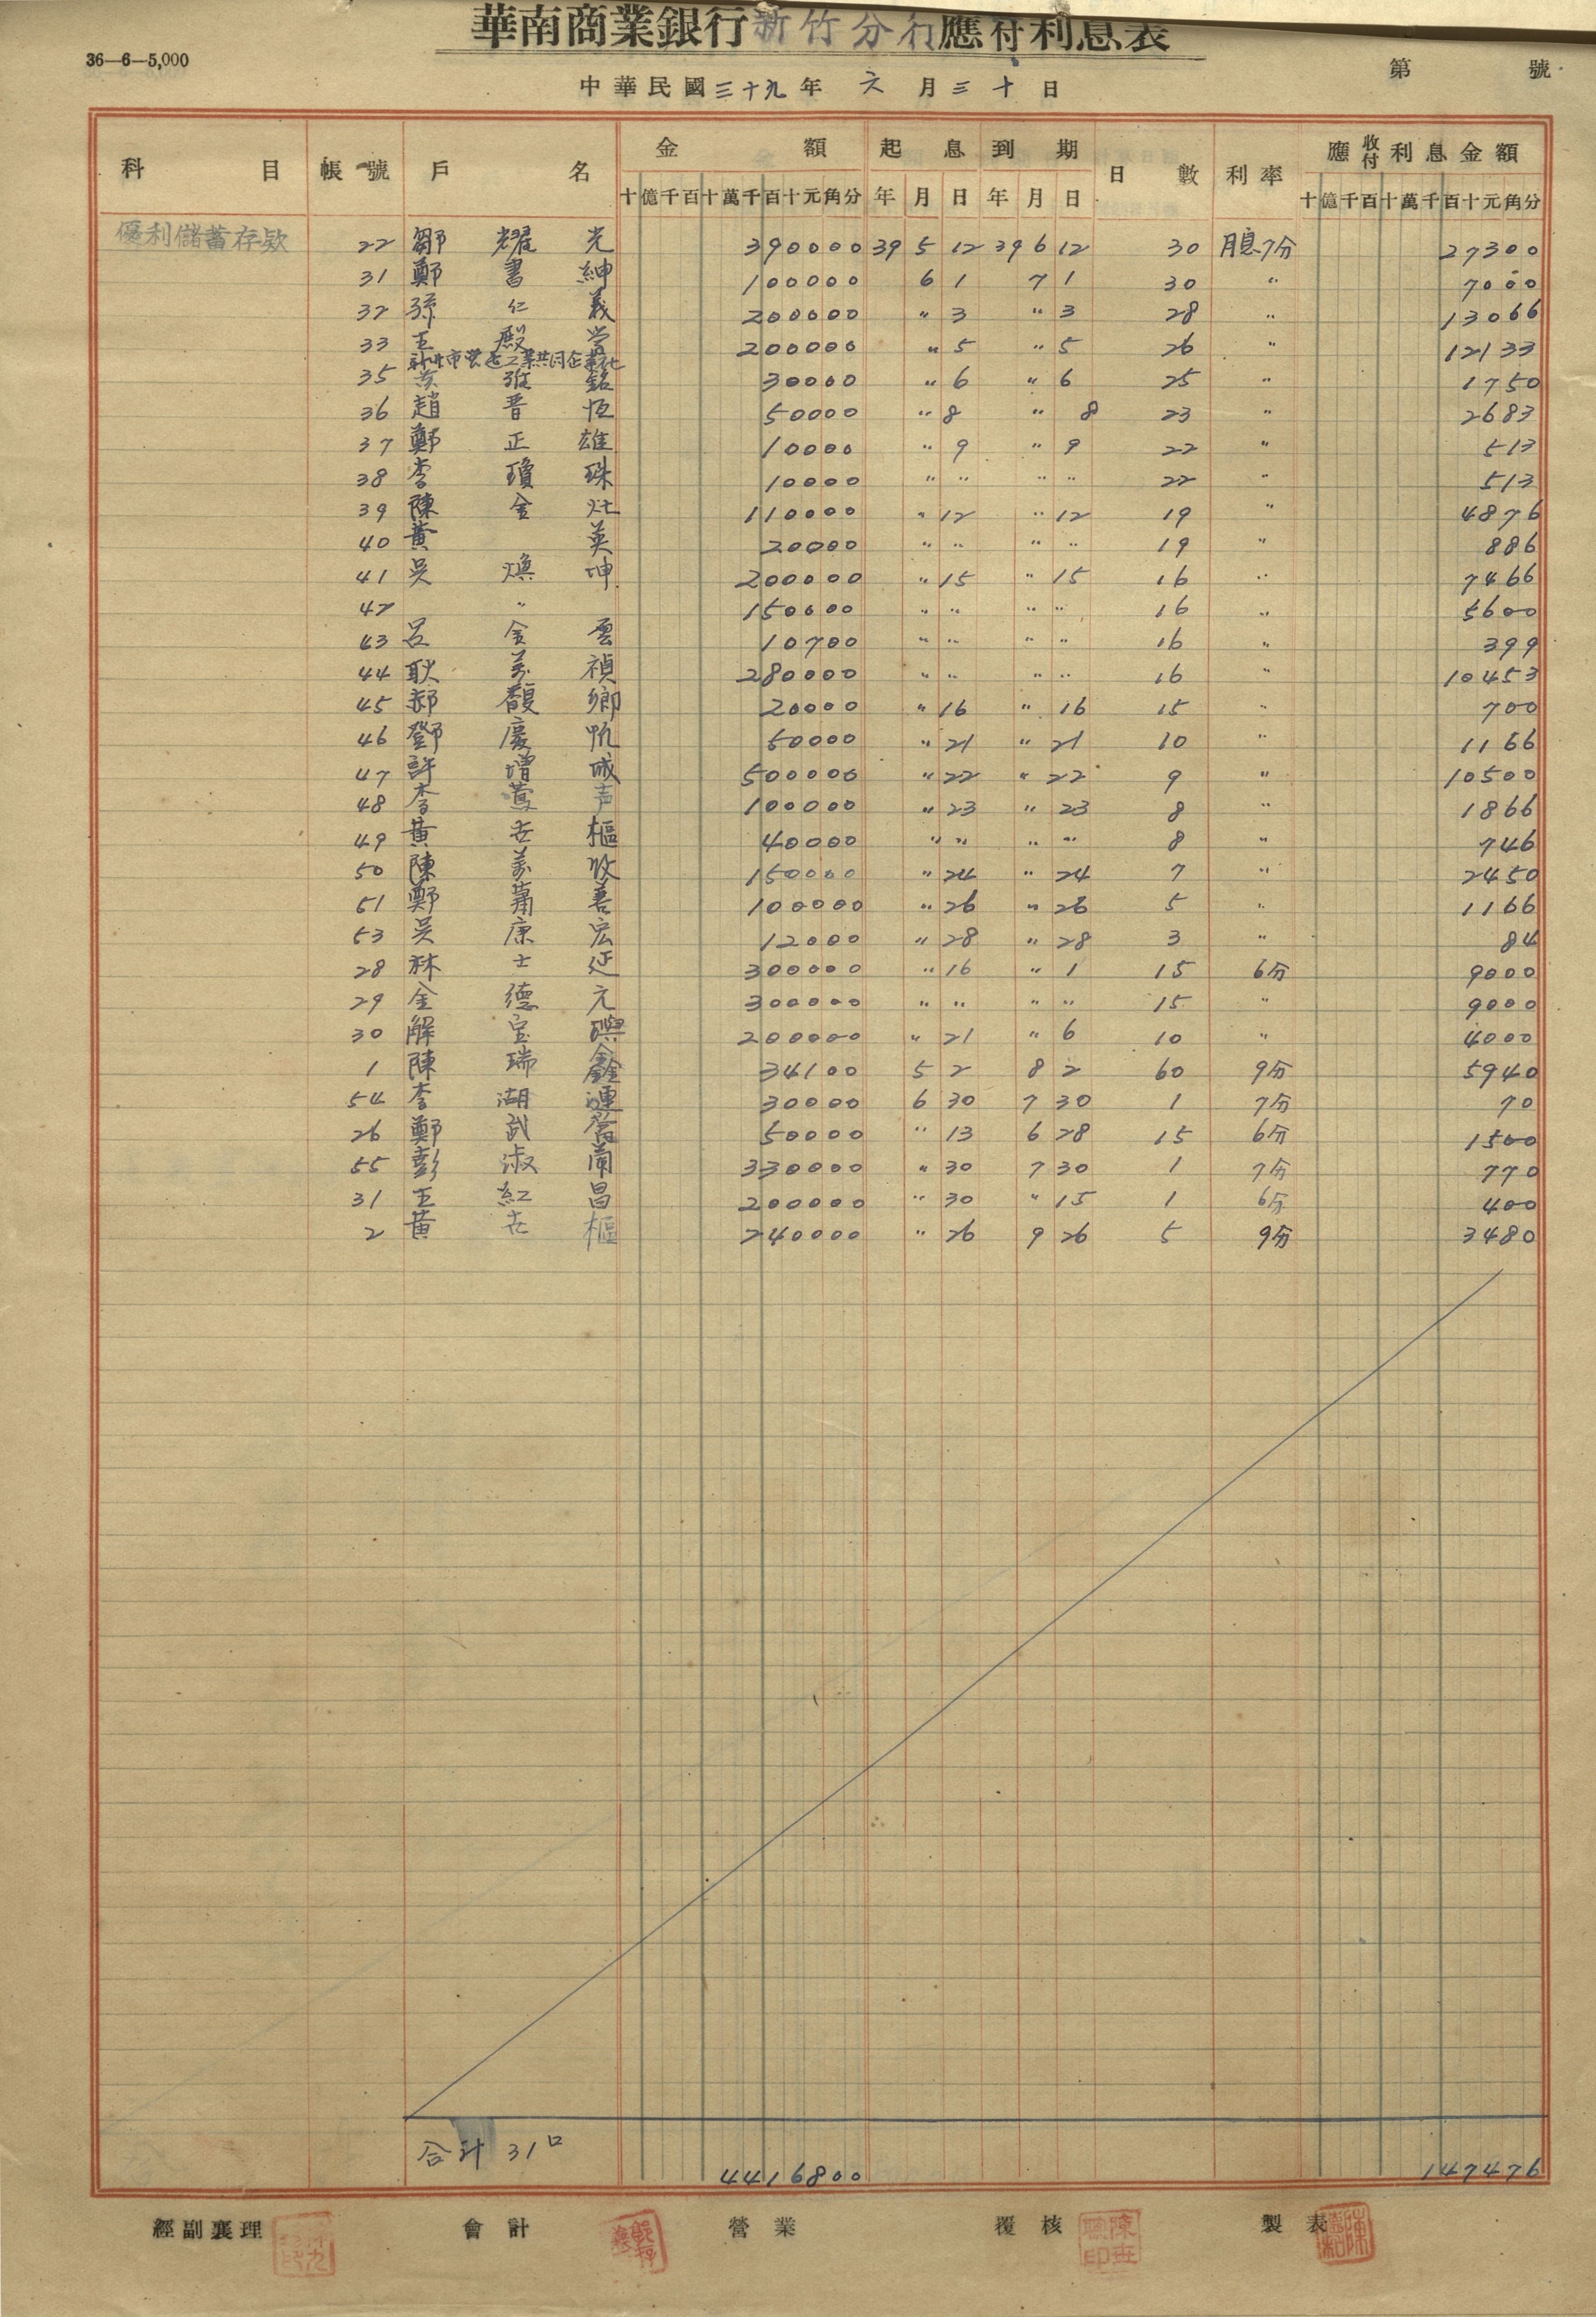 華南商業銀行新竹分行應付利息表
36—6—5,000
第 號
中華民國三十九年 六 月 三十 日
科目 帳號 戶名 金額 起息 到期 日數 利率 應收付利息金額
十億千百十萬千百十元角分 年 月 日 年 月 日 十億千百十萬千百十元角分
優利儲蓄存款 22 鄒耀光 390000 39 5 12 39 6 12 30 月息7分 27300
31 鄭書紳 100000 6 1 7 1 30 〃 7000
32 孫仁義 200000 〃 3 〃 3 28 〃 13066
33 王殿 200000 〃 5 〃 5 26 〃 12133
35 銘 30000 〃 6 〃 6 25 〃 1750
36 趙晋恆 50000 〃 8 〃 8 23 〃 2683
37 鄭正雄 10000 〃 9 〃 9 22 〃 513
38 李瓊珠 10000 〃 〃 〃 〃 22 〃 513
39 陳金灶 110000 〃 12 〃 12 19 〃 4876
40 黃英 20000 〃 〃 〃 〃 19 〃 886
41 吳煥坤 200000 〃 15 〃 15 16 〃 7466
42 〃 150000 〃 〃 〃 〃 16 〃 5600
43 呂金雲 10700 〃 〃 〃 〃 16 〃 399
44 耿禎 280000 〃 〃 〃 〃 16 〃 10453
45 郝馥卿 20000 〃 16 〃 16 15 〃 700
46 鄧慶 50000 〃 21 〃 21 10 〃 1166
47 許增城 500000 〃 22 〃 22 9 〃 10500
48 李鶯声 100000 〃 23 〃 23 8 〃 1866
49 黃世樞 40000 〃 〃 〃 〃 8 〃 746
50 陳 150000 〃 24 〃 24 7 〃 2450
51 鄭蕭善 100000 〃 26 〃 26 5 〃 1166
53 吳康宏 12000 〃 28 〃 28 3 〃 84
28 林士延 300000 〃 16 〃 1 15 6分 9000
29 金德元 300000 〃 〃 〃 〃 15 〃 9000
30 解宝璵 200000 〃 21 〃 6 10 〃 4000
1 陳瑞鑫 34100 5 2 8 2 60 9分 5940
54 李湖漣 30000 6 30 7 30 1 7分 70
26 鄭武 50000 〃 13 6 28 15 6分 1500
55 彭淑蘭 330000 〃 30 7 30 1 7分 770
31 王紅昌 200000 〃 30 〃 15 1 6分 400
2 黃世樞 240000 〃 26 9 26 5 9分 3480
合計 31口 4416800 147476
經副襄理 會計 營業 覆核 製表